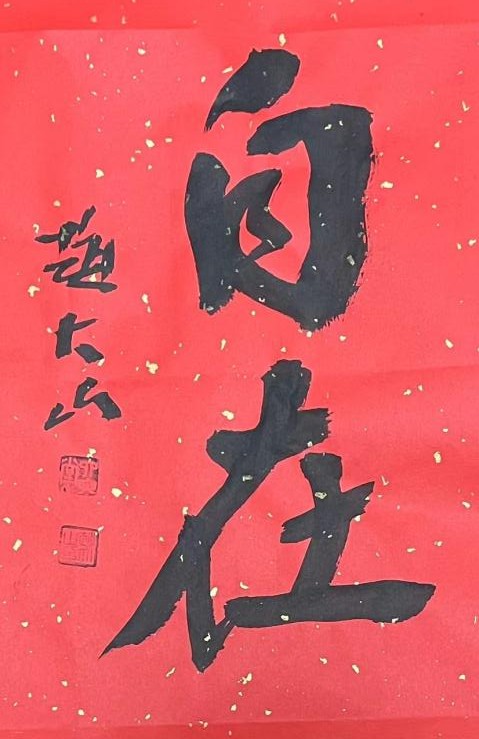 自在
趙大山